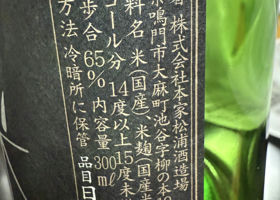 者 株式会社本家松浦酒造場
鳴門市大麻町池谷字柳の本19
料名 米(国産)、米麹(国産米
コール分 14度以上15度未
歩合 65% 内容量300ml
方法 冷暗所に保管 品目 日